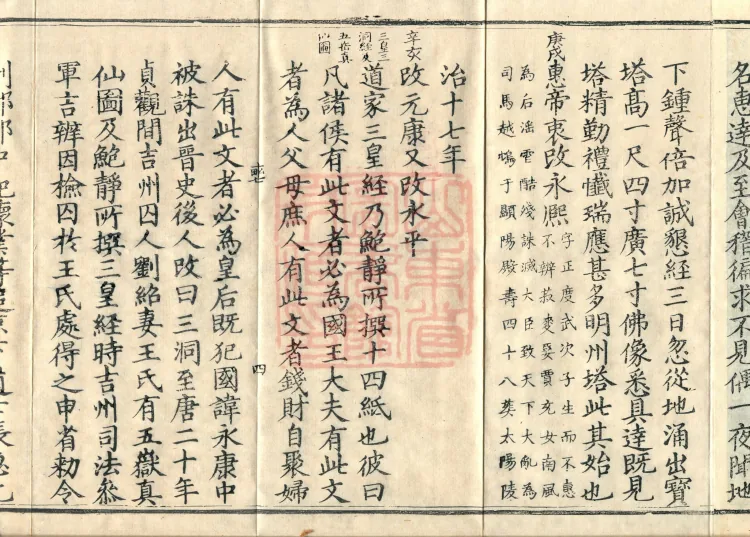 名惠達及至會稽遍求不見偶一夜聞地
下鍾聲倍加誠懇經三日忽從地涌出寶
塔高一尺四寸廣七寸佛像悉具達既見
塔精勤禮懺瑞應甚多明州塔此其始也
庚戌惠帝衷改永熈字正度武次子生而不惠
不辨菽麥妥賈充女南風
為后滛虐酷殘誅滅大臣致天下大亂為
司馬越鴆于顯陽殿壽四十八葬太陽陵
治十七年
辛亥改元康又改永平
三皇三
洞經失
五岳真
以圖
道家三皇經乃鮑靜所撰十四紙也彼曰
凡諸侯有此文者必為國王大夫有此文
者為人父母庶人有此文者錢財自聚婦
四
人有此文者必為皇后既犯國諱永康中
被誅出晉史後人改曰三洞至唐二十年
貞觀間吉州囚人劉紹妻王氏有五嶽真
仙圖及鮑靜所撰三皇經時吉州司法叅
軍吉辨因檢囚於王氏處得之申省勑令
山東省